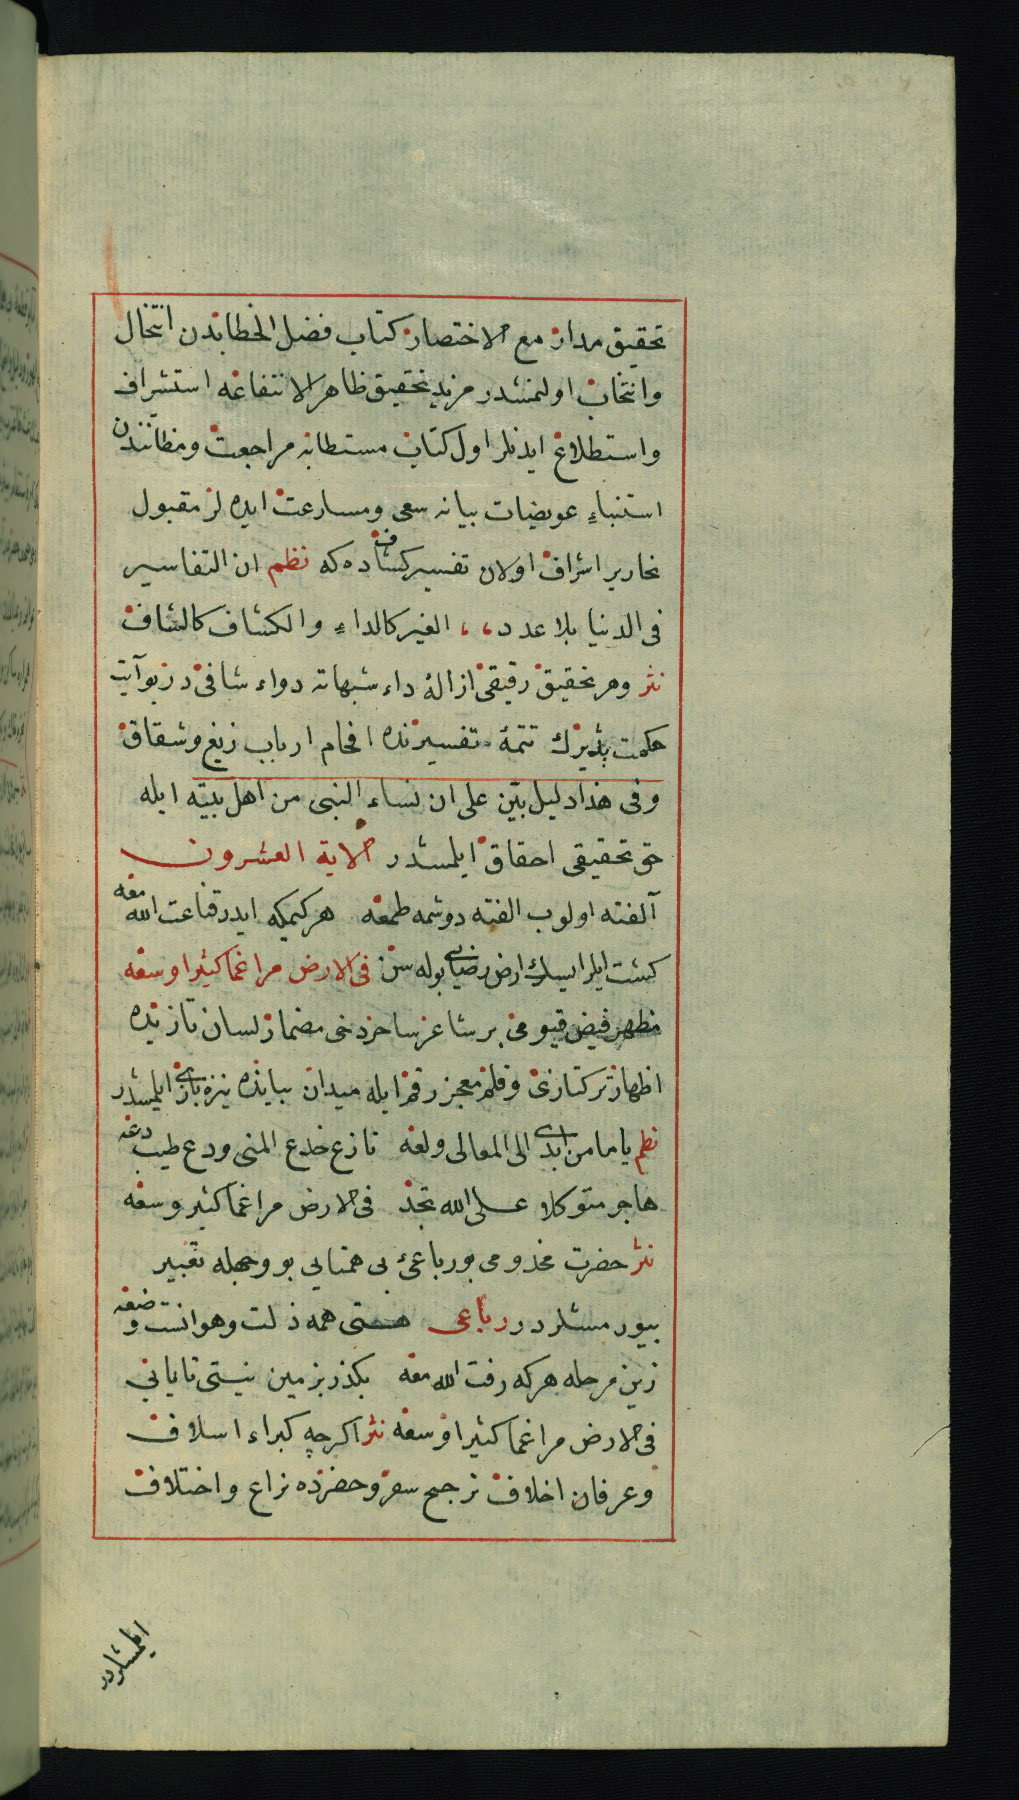 تحقیق مدار مع الاختصار کتاب فضل الخطابدن انتخال
وانتخاب اولنمشدر مزید تحقیق ظاهر الانتفاعه استشراف
واستطلاع ایدنلر اول کتاب مستطابه مراجعت ومظانندن
استنباء عویضات بیانه سعی ومسارعت ایده لر مقبول
نحاریر اشراف اولان تفسیر کشافده که نظم ان التفاسیر
فی الدنیا بلا عدد ،، الغیر کالداء والکشاف کالشاف
نثر وهر تحقیق رقیقی ازالهٔ داء شبهاته دواء شافی در بو آیت
حکمت پذیرك تتمهٔ تفسیرنده افحام ارباب زیغ وشقاق
وفی هذا دلیل بیّن علی ان نساء النبی من اهل بیته ایله
حق تحقیقی احقاق ایلمشدر الایة العشرون
آلفته اولوب الفته دوشمه طمعه هر کیمکه ایدر قناعت الله معه
کشت ایلر ایسك ارض رضایی بوله سن فی الارض مراغما کثیرا وسعه
مظهر فیض قیومی بر شاعر ساحر دخی مضمار لسان تازیده
اظهار ترکتازی وقلم معجز رقم ایله میدان بیانده نیزه بازی ایلمشدر
نظم یا مامن ابدی الی المعالی ولعه نازع خدع المنی ودع طیب دعه
هاجر متوکلا علی الله تجد فی الارض مراغما کثیر وسعه
نثر حضرت مخدومی بو رباعیٔ بی همتایی بو وجهله تعبیر
بیورمشلردر رباعی هستی همه ذلت وهوانست وضعه
زین مرحله هر که رفت الله معه بکذر بزمین نیستی تا یابی
فی الارض مراغما کثیرا وسعه نثر اکرچه کبراء اسلاف
وعرفان اخلاف ترجیح سفر وحضرده نزاع واختلاف
ایلمشلردر